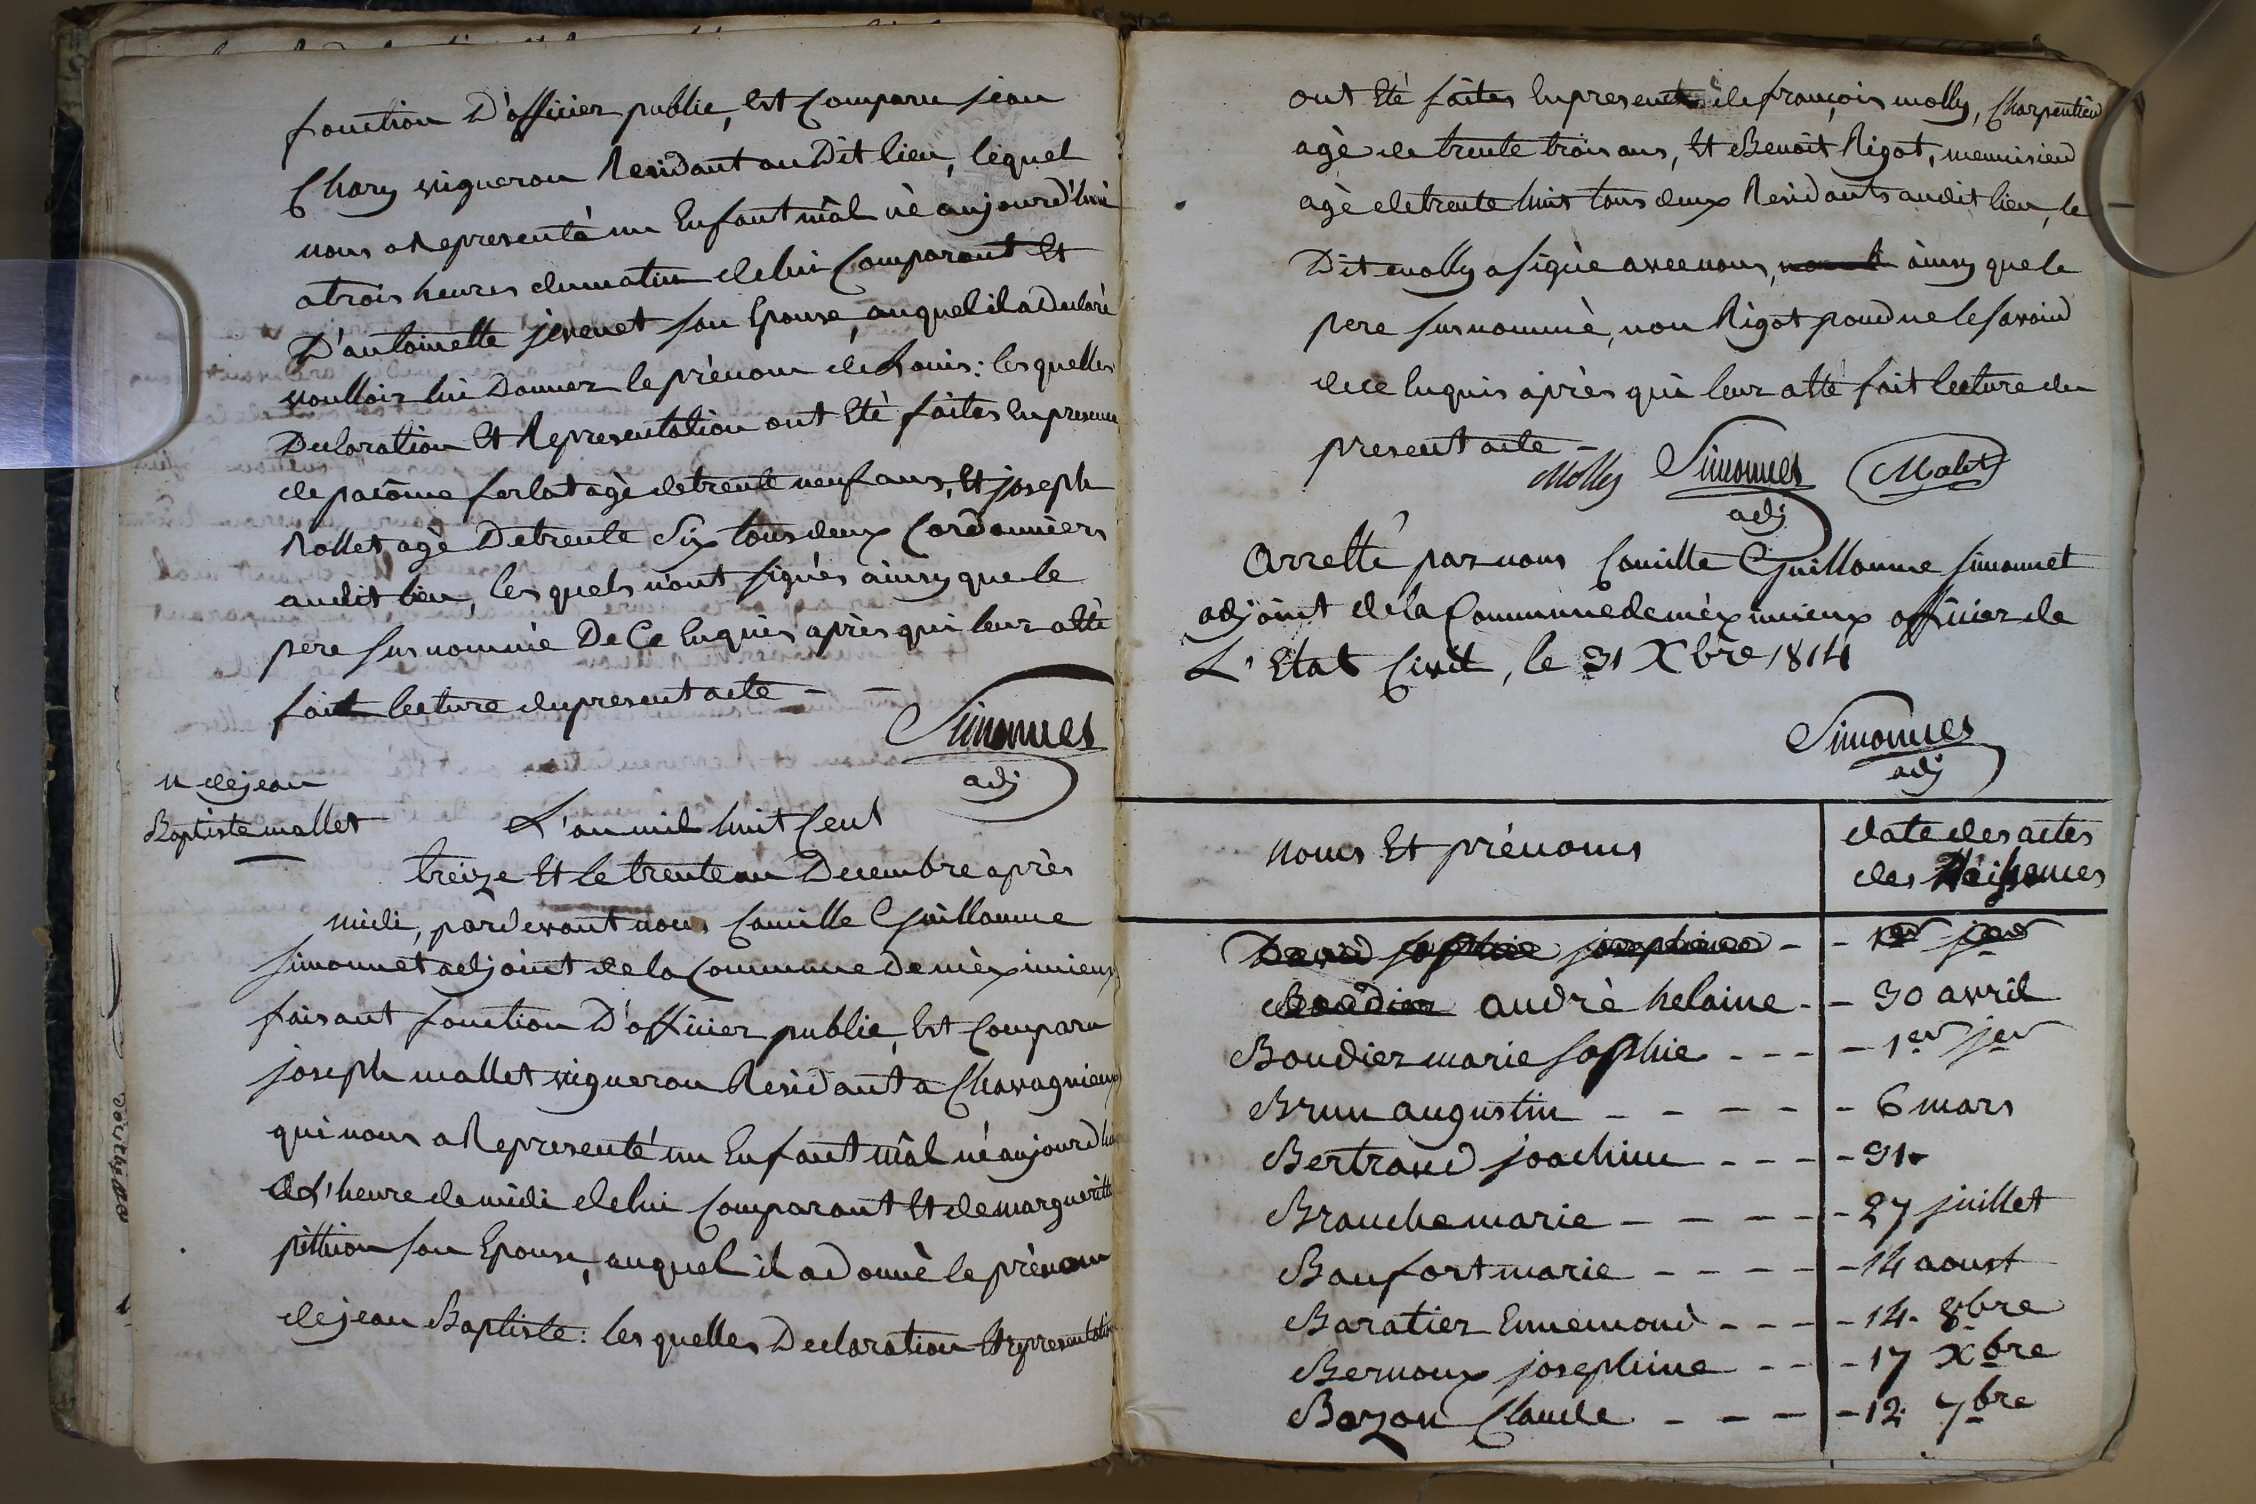 fonction D'officier public, Est Comparu jean
Chary vigneron Residant au Dit lieu, lequel
nous a Representé un Enfant mâl nè aujourd'hui
a trois heures du matin de lui Comparant Et
D'antoinette jevenet son Epouse, auquel il a Declarè
voulloir lui Donner le prènom de Louis: les quelles
Declaration Et Representation ont Etè faites En presence
de pacôme ferlat agè de trente neuf ans, Et joseph
Rollet agè De trente Six tous deux Cordonniers
au dit lieu, les quels n'ont signés ainsy que le
pere susnommé De Ce Enquis après qui leur a Eté
fait lecture du present acte - -
Simonnet
adj
N de jean
Baptiste mallet
L'an mil huit Cent
treize Et le trente un Decembre après
midi, pardevant nous Camille Guillaume
Simonnet adjoint de la Commune de mèximieux
faisant fonction D'officier public, Est Comparu
joseph mallet vigneron Residant a Chavagnieux
qui nous a Representé un Enfant mâl né aujourd'hui
a L'heure de midi de lui Comparant Et de margueritte
pithion son Epouse, auquel il a donnè le prènom
de jean Baptiste: les quelles Declaration Et representation
ont Eté faites En presence de françois molly, Charpentier
agè de trente trois ans, Et Benoit Rigot, menuisier
agè de trente huit tous deux Residants au dit lieu, le
Dit molly a signè avec nous, ainsy que le
pere susnommè, non Rigot pour ne le savoir
de ce Enquis après qui leur a Eté fait lecture du
present acte -
Molly Simonnet Malet
adj
Arretté par nous Camille Guillaume Simonnet
adjoint de la Commune de mèximieux officier de
L'Etat Civil, le 31 Xbre 1814
Simonnet
adj
Noms Et prénoms
date des actes
des Naissances
David sophie josephine - - 1er jer
Boudier andrè helaine - - 30 avril
Boudier marie sophie - - - - 1er jer
Brun augustin - - - - - - 6 mars
Bertrand joachim - - - - 31
Branche marie - - - - - 27 juillet
Baufort marie - - - - - 14 aoust
Baratier Ennemond - - - - 14. 8bre
Bernoux josephine - - - 17 Xbre
Bozon Claude - - - - - 12 7bre